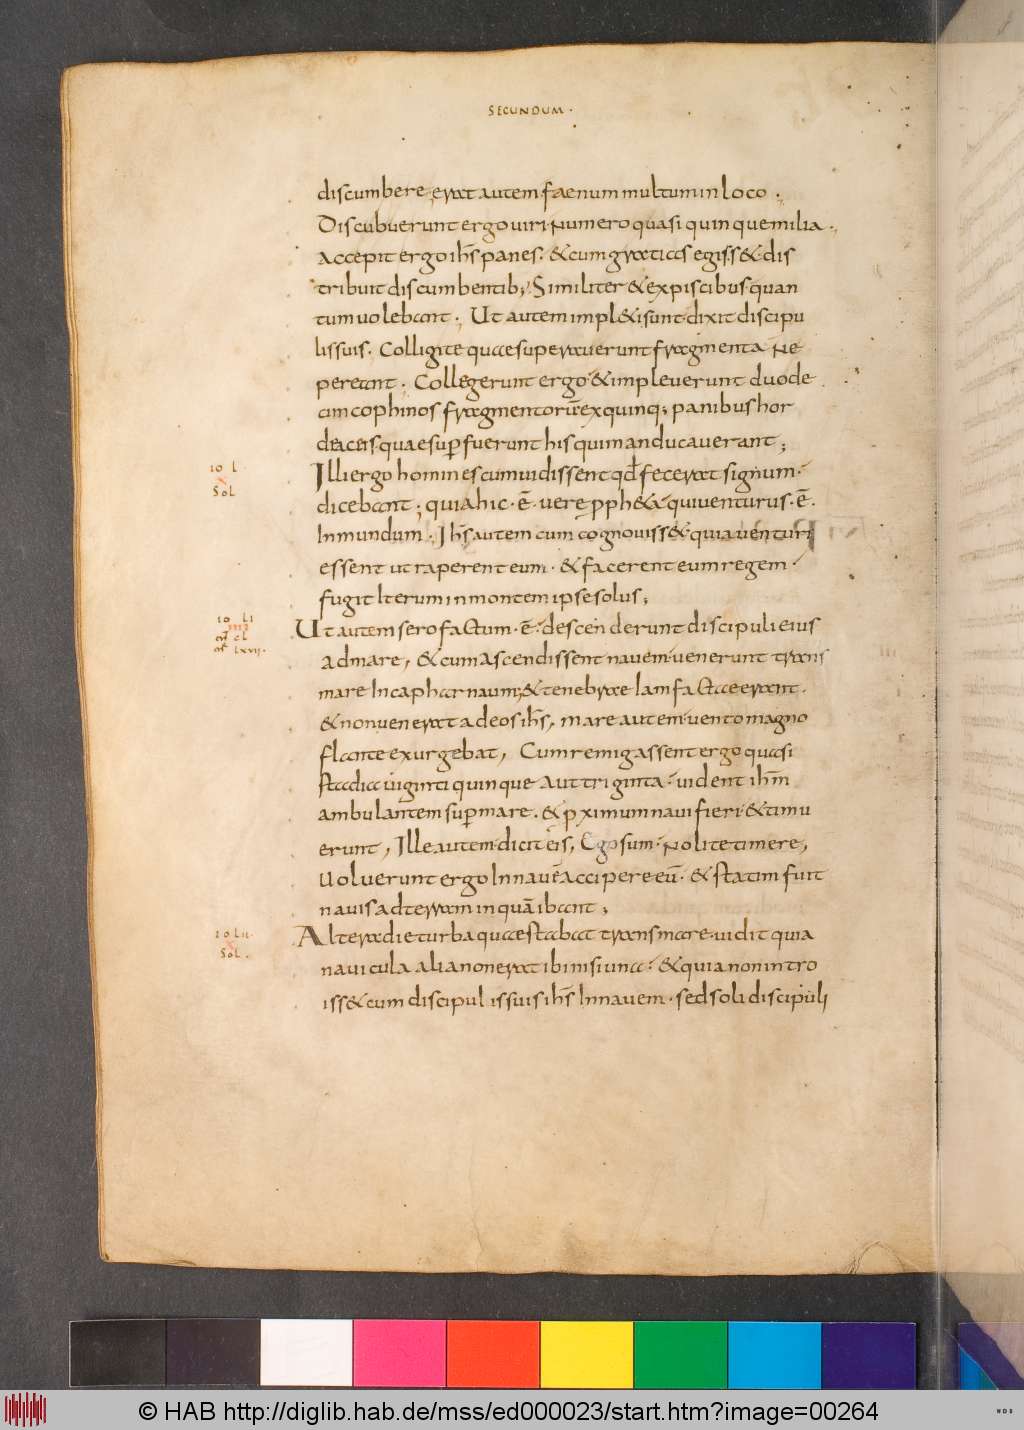 SECUNDUM ·
discumbere· erat autem faenum multum in loco ·
Discubuerunt ergo viri· numero quasi quinque milia ·
Accepit ergo ih̅s panes· & cum gratias egiss& dis
tribuit discumbentib; Similiter & ex piscibus quan
tum volebant · Ut autem impl&i sunt· dixit discipu
lis suis · Colligite quae superaverunt fragmenta ne
pereant · Collegerunt ergo· & impleverunt duode
cim cophinos fragmentoru̅ ex quinq; panibus hor
deaceis· quae sup̅fuerunt his qui manducaverant ;
Illi ergo homines cum vidissent qd̅ fecerat signum ·
dicebant ; quia hic · e̅ · vere pph&a qui venturus · e̅ ·
In mundum · Ih̅s autem cum cognoviss& quia venturi
essent ut raperent eum · & facerent eum regem ·
fugit Iterum in montem ipse solus ;
Ut autem sero factum · e̅ · descenderunt discipuli eius
ad mare, & cum ascendissent navem· venerunt trans
mare In capharnaum; & tenebrae Iam factae erant ·
& non venerat ad eos ih̅s, mare autem· vento magno
flante exurgebat, Cum remigassent ergo quasi
stadia viginti quinque aut triginta· vident ih̅m
ambulantem sup̅ mare · & p ximum navi fieri· & timu
erunt, Ille autem· dicit eis, Ego sum· Nolite timere,
Voluerunt ergo In nave̅ accipere eu̅ · & statim fuit
navis ad terram in qua̅ ibant ;
Altera die turba quae stabat trans mare· vidit quia
navicula alia non erat ibi nisi una· & quia non intro
iss& cum discipulis suis ih̅s In navem · sed soli discipuli
IO L
X
Sol
IO LI
IIII
CL
LXVII·
IO LII·
X
Sol ·
© HAB http://diglib.hab.de/mss/ed000023/start.htm?image=00264
WDB